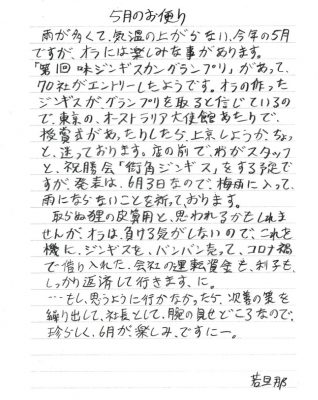 5月のお便り
雨が多くて、気温の上がらない、今年の5月
ですが、オラには楽しみな事があります。
「第1回味ジンギスカングランプリ」があって、
70社がエントリーしたようです。オラの作った
ジンギスが、グランプリを取ると信じているの
で、東京の、オーストラリア大使館あたりで、
授賞式があったりしたら、上京しようか、なぁ
と、迷っております。店の前で、わがスタッフ
と、祝勝会「街角ジンギス」をする予定
ですが、発表は、6月3日なので、梅雨に入って、
雨にならないことを祈っております。
取らぬ狸の皮算用と、思われるかもしれま
せんが、オラは、負ける気がしないので、これを
機に、ジンギスを、バンバン売って、コロナ禍
で借り入れた、会社の運転資金も、利子も、
しっかり返済して行きます、に。
…もし、思うように行かなかったら、次善の策を
繰り出して、社長として、腕の見せどころなので、
珍らしく、6月が楽しみ、ですにー。
若旦那